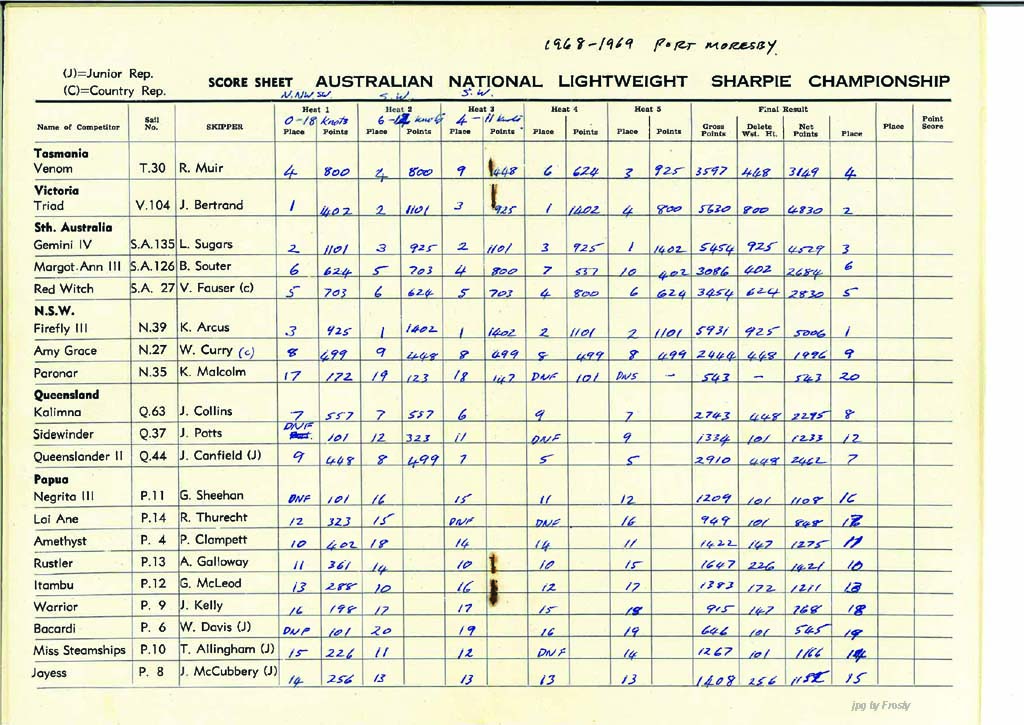 1968-1969 PORT MORESBY
(J)=Junior Rep.
(C)=Country Rep.
SCORE SHEET AUSTRALIAN NATIONAL LIGHTWEIGHT SHARPIE CHAMPIONSHIP
N.NW.SW. S.W. S.W.
Heat 1 Heat 2 Heat 3 Heat 4 Heat 5 Final Result
0-18 knots 6- knots 4-11 knots
Name of Competitor Sail No. SKIPPER Place Points Place Points Place Points Place Points Place Points Gross Points Delete Wst. Ht. Net Points Place Place Point Score
Tasmania
Venom T.30 R. Muir 4 800 4 800 9 448 6 624 3 925 3597 448 3149 4
Victoria
Triad V.104 J. Bertrand 1 1402 2 1101 3 925 1 1402 4 800 5630 800 4830 2
Sth. Australia
Gemini IV S.A.135 L. Sugars 2 1101 3 925 2 1101 3 925 1 1402 5454 925 4529 3
Margot-Ann III S.A.126 B. Souter 6 624 5 703 4 800 7 557 10 402 3086 402 2684 6
Red Witch S.A. 27 V. Fauser (c) 5 703 6 624 5 703 4 800 6 624 3454 624 2830 5
N.S.W.
Firefly III N.39 K. Arcus 3 925 1 1402 1 1402 2 1101 2 1101 5931 925 5006 1
Amy Grace N.27 W. Curry (c) 8 499 9 448 8 499 8 499 8 499 2444 448 1996 9
Paronar N.35 K. Malcolm 17 172 19 123 18 147 DNF 101 DNS - 543 - 543 20
Queensland
Kalimna Q.63 J. Collins 7 557 7 557 6 9 7 2743 448 2295 8
Sidewinder Q.37 J. Potts DNF 101 12 323 11 DNF 9 1334 101 1233 12
Queenslander II Q.44 J. Canfield (J) 9 448 8 499 7 5 5 2910 448 2462 7
Papua
Negrita III P.11 G. Sheehan DNF 101 16 15 11 12 1209 101 1108 16
Loi Ane P.14 R. Thurecht 12 323 15 DNF DNF 16 949 101 848
Amethyst P. 4 P. Clampett 10 402 18 14 14 11 1422 147 1275 11
Rustler P.13 A. Galloway 11 361 14 10 10 15 1647 226 1421 10
Itambu P.12 G. McLeod 13 288 10 16 12 17 1383 172 1211 13
Warrior P. 9 J. Kelly 16 198 17 17 15 18 915 147 768 18
Bacardi P. 6 W. Davis (J) DNF 101 20 19 16 19 646 101 545 19
Miss Steamships P.10 T. Allingham (J) 15 226 11 12 DNF 14 1267 101 1166 14
Jayess P. 8 J. McCubbery (J) 14 256 13 13 13 13 1408 256 1152 15
jpg by Frosty